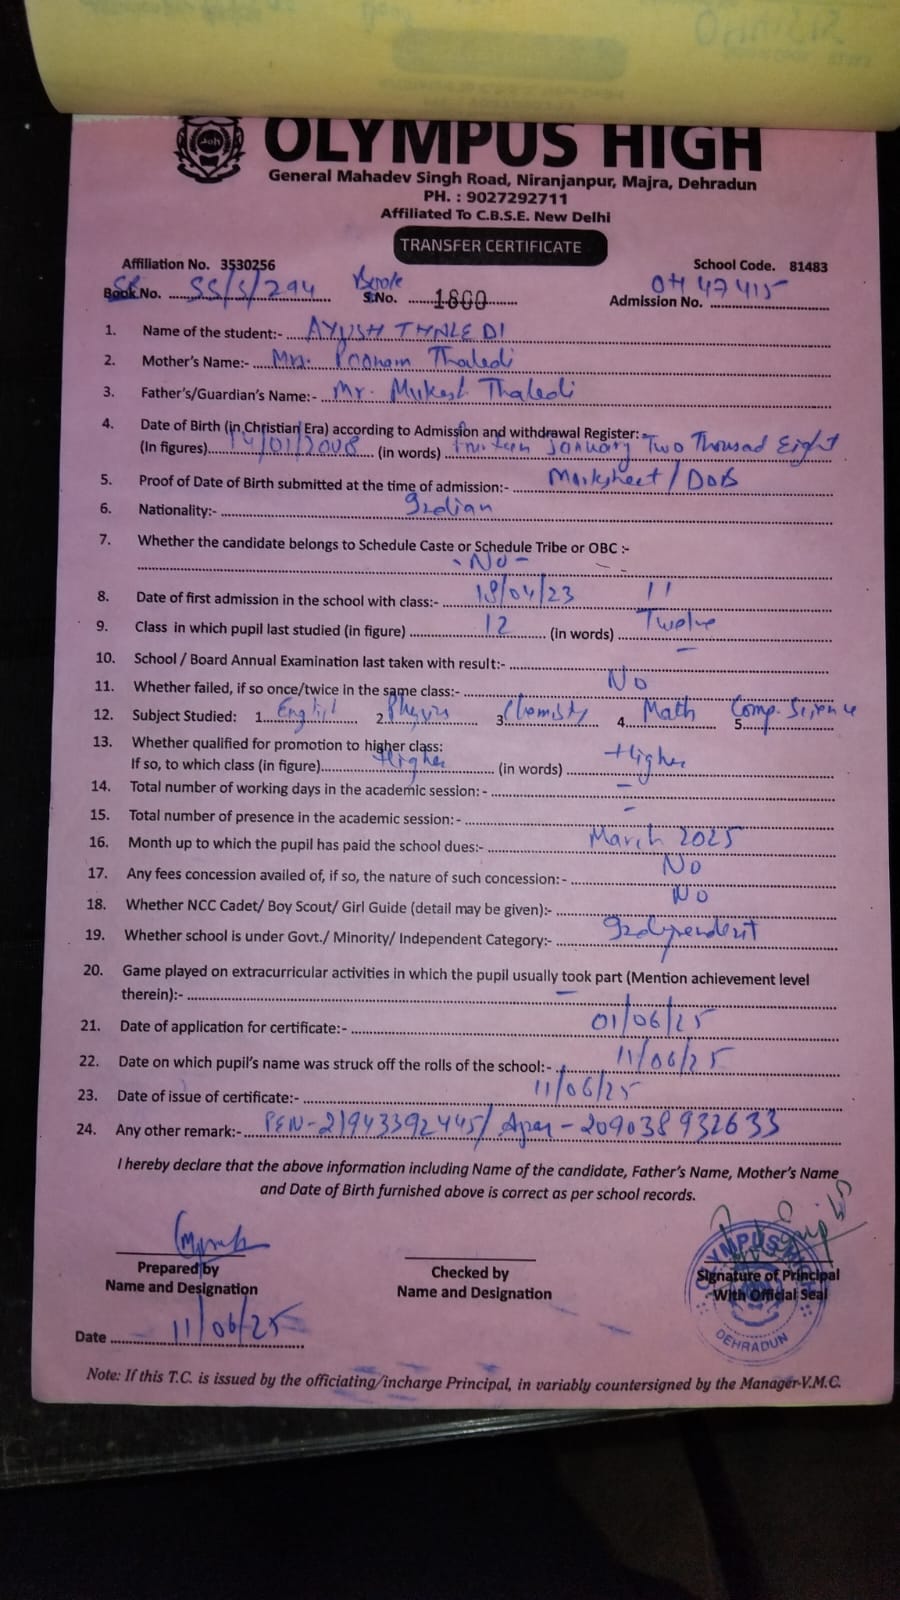 OLYMPUS HIGH
General Mahadev Singh Road, Niranjanpur, Majra, Dehradun
PH. : 9027292711
Affiliated To C.B.S.E. New Delhi
TRANSFER CERTIFICATE
Affiliation No. 3530256 School Code. 81483
SR No. SS/S/294 S.No. 1860 Admission No. OH 47415
1. Name of the student:- AYUSH THALEDI
2. Mother's Name:- Mrs. Poonam Thaledi
3. Father's/Guardian's Name:- Mr. Mukesh Thaledi
4. Date of Birth (in Christian Era) according to Admission and withdrawal Register:-
(In figures) 14/01/2008 (in words) Fourteen January Two Thousand Eight
5. Proof of Date of Birth submitted at the time of admission:- Marksheet / DOB
6. Nationality:- Indian
7. Whether the candidate belongs to Schedule Caste or Schedule Tribe or OBC :-
- No -
8. Date of first admission in the school with class:- /04/23 11
9. Class in which pupil last studied (in figure) 12 (in words) Twelve
10. School / Board Annual Examination last taken with result:- -
11. Whether failed, if so once/twice in the same class:- No
12. Subject Studied: 1. English 2. Physics 3. Chemistry 4. Math 5. Comp. Science
13. Whether qualified for promotion to higher class:
If so, to which class (in figure) Higher (in words) Higher
14. Total number of working days in the academic session: - -
15. Total number of presence in the academic session: - -
16. Month up to which the pupil has paid the school dues:- March 2025
17. Any fees concession availed of, if so, the nature of such concession:- No
18. Whether NCC Cadet/ Boy Scout/ Girl Guide (detail may be given):- No
19. Whether school is under Govt./ Minority/ Independent Category:- Independent
20. Game played on extracurricular activities in which the pupil usually took part (Mention achievement level
therein):- -
21. Date of application for certificate:- 01/06/25
22. Date on which pupil's name was struck off the rolls of the school:- 11/06/25
23. Date of issue of certificate:- 11/06/25
24. Any other remark:- PEN-21943392445/ Apar - 209038932633
I hereby declare that the above information including Name of the candidate, Father's Name, Mother's Name
and Date of Birth furnished above is correct as per school records.
Prepared by Checked by Signature of Principal
Name and Designation Name and Designation With Official Seal
OLYMPUS HIGH
DEHRADUN
Date 11/06/25
Note: If this T.C. is issued by the officiating/incharge Principal, in variably countersigned by the Manager-V.M.C.